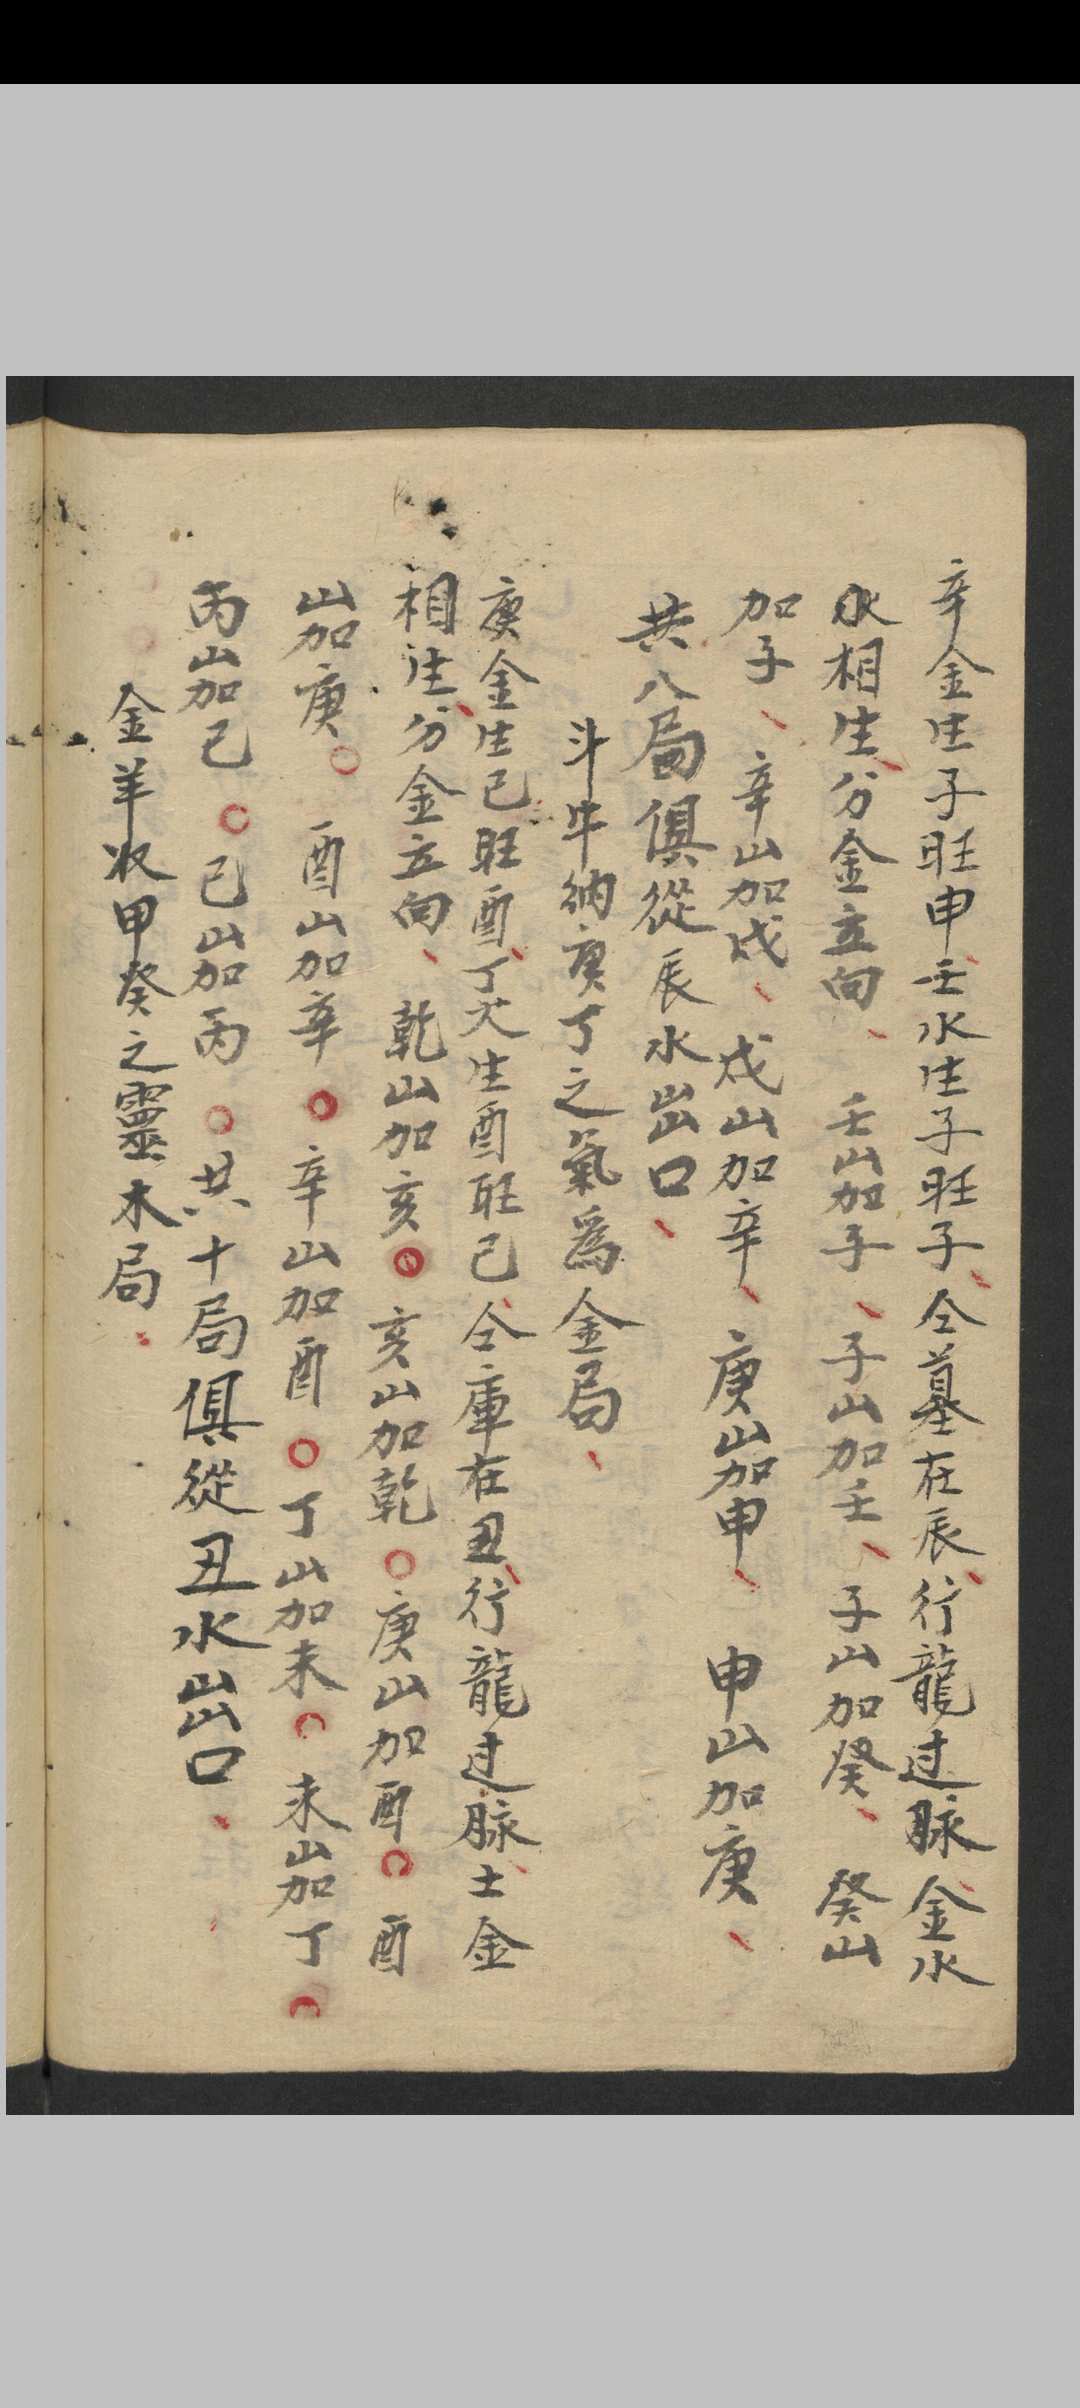 辛金生子旺申壬水生子旺子仝墓在辰行龍过脉金水
水相生分金立向壬山加子子山加壬子山加癸癸山
加子辛山加戌戌山加辛庚山加申申山加庚
共八局俱從辰水出口
斗牛納庚丁之氣為金局
庚金生巳旺酉丁火生酉旺巳仝庫在丑行龍过脉士金
相生分金立向乾山加亥亥山加乾庚山加酉酉
山加庚酉山加辛辛山加酉丁山加未未山加丁
丙山加巳巳山加丙共十局俱從丑水出口
金羊收甲癸之靈木局